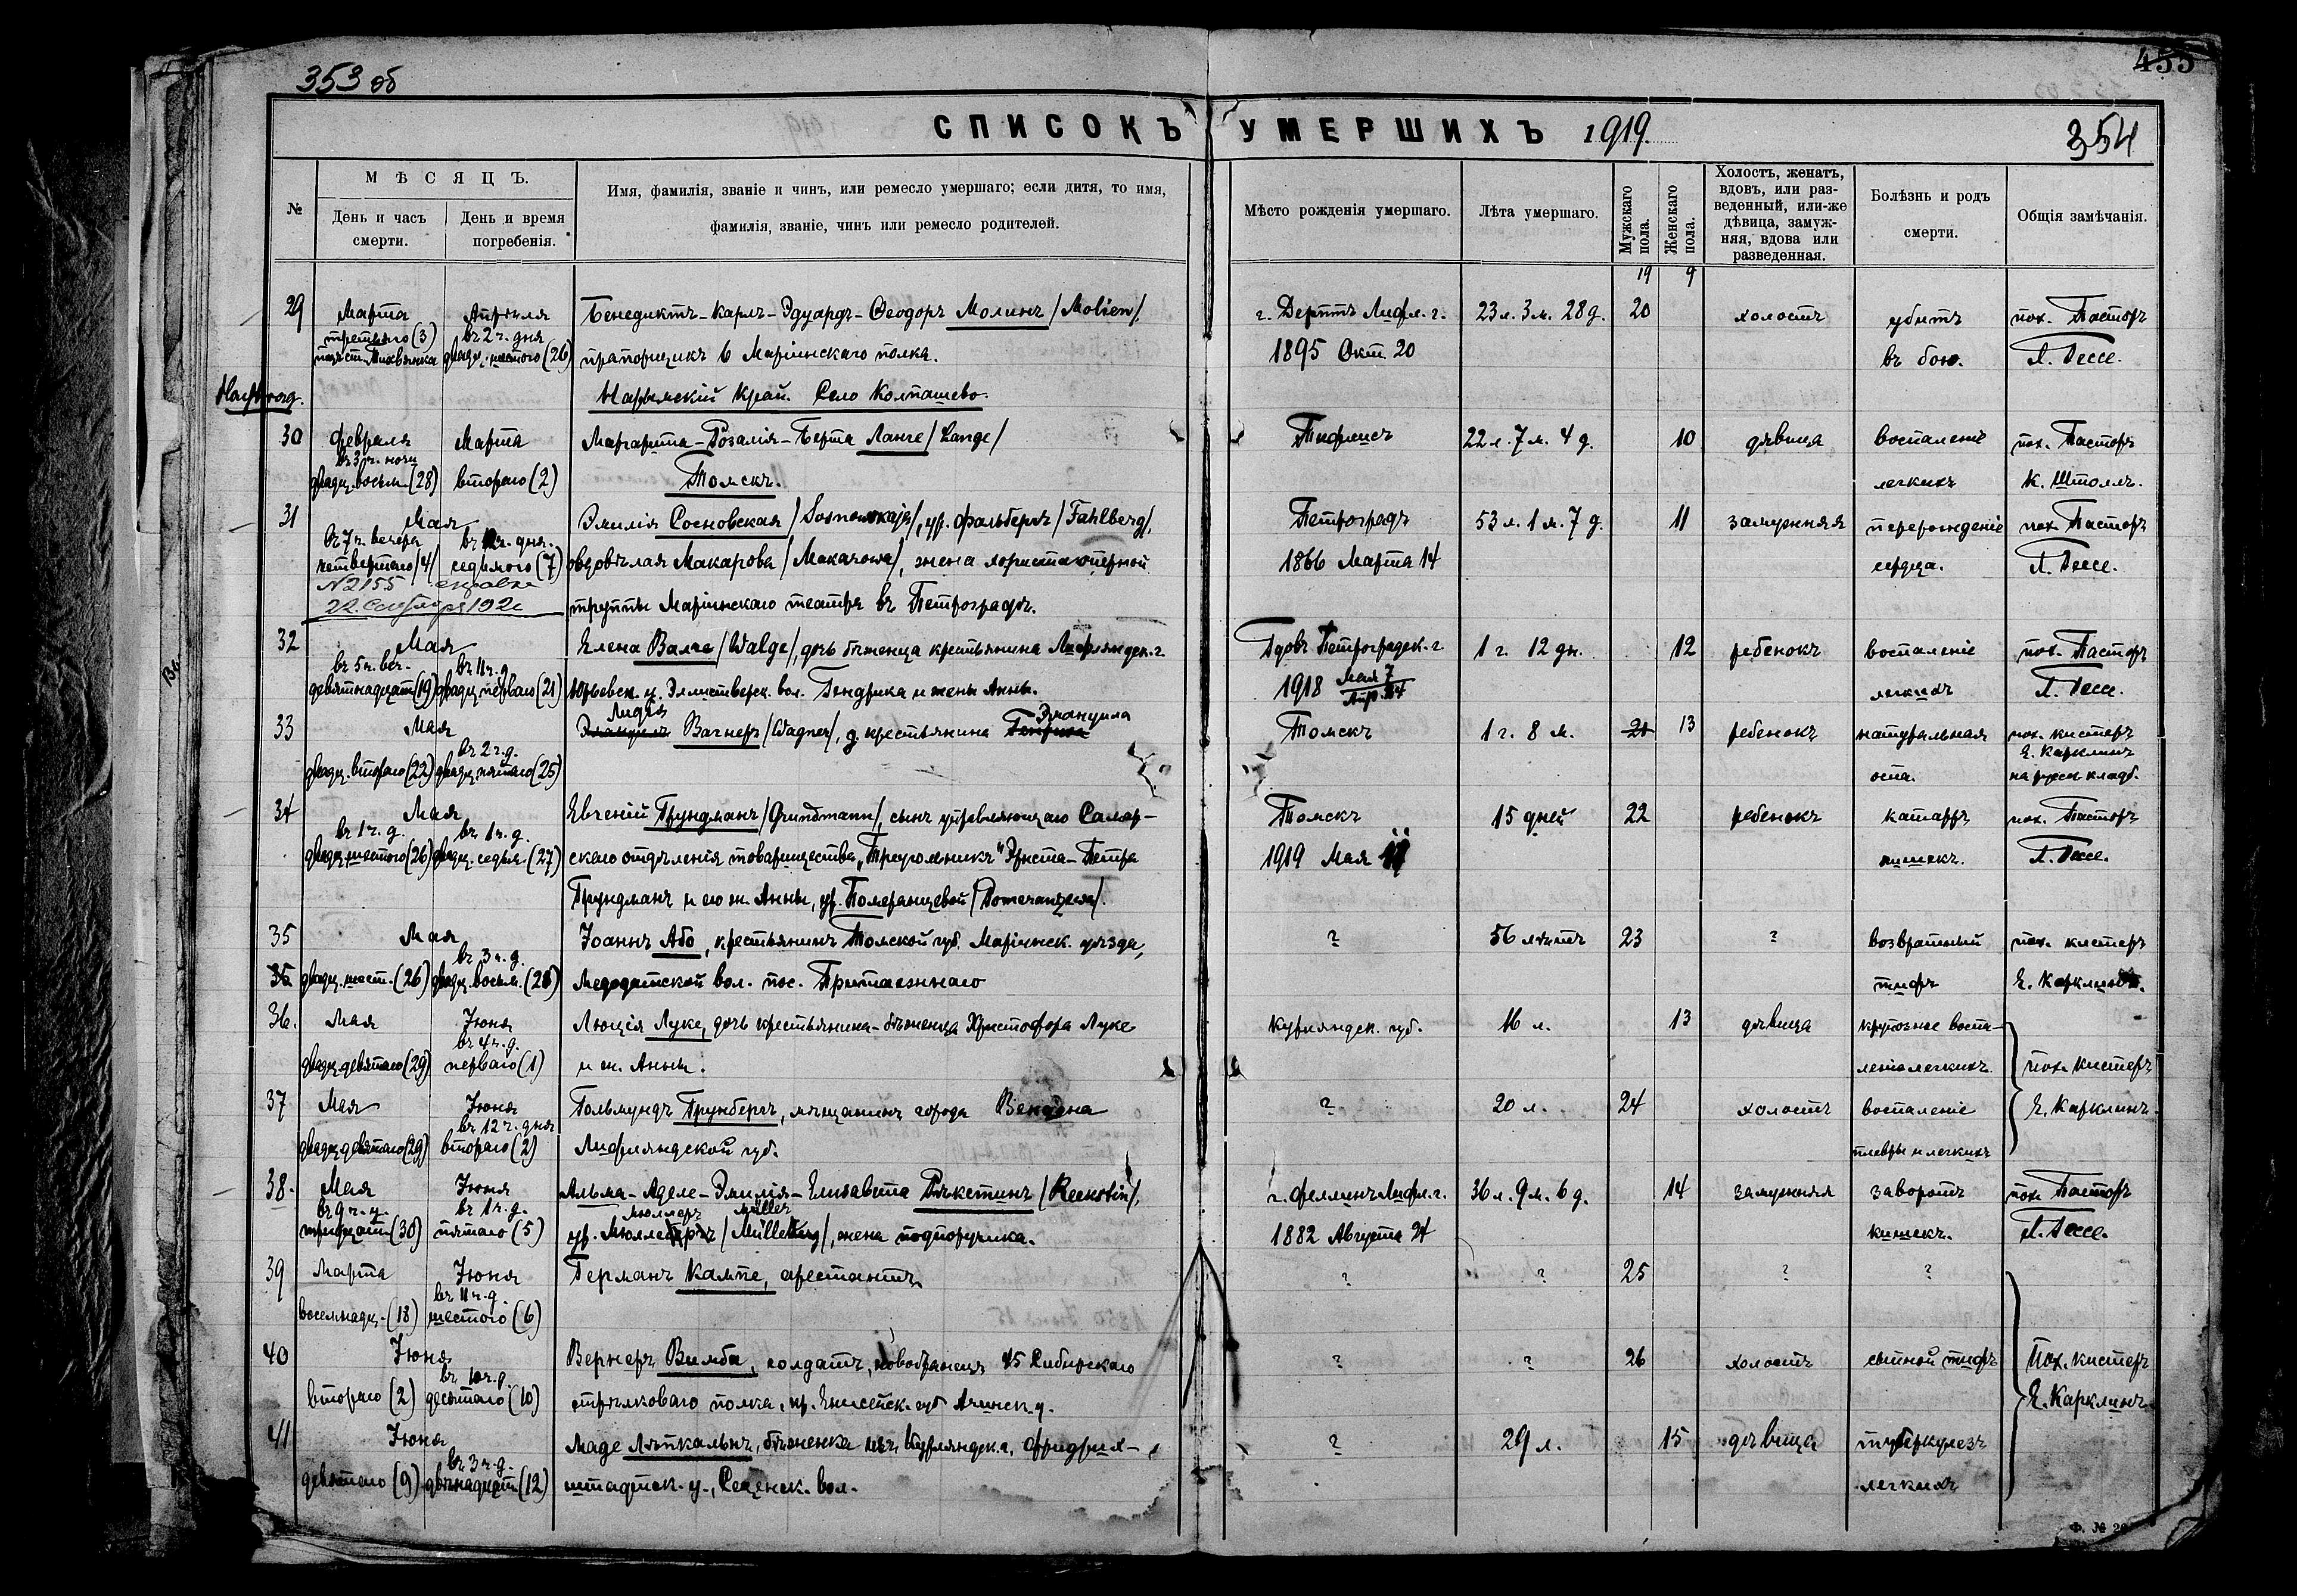 353 об
455
СПИСОКЪ УМЕРШИХЪ 1919.
354
№
МѢСЯЦЪ.
День и часъ смерти.
День и время погребенія.
Имя, фамилія, званіе и чинъ, или ремесло умершаго; если дитя, то имя,
фамилія, званіе, чинъ или ремесло родителей.
Мѣсто рожденія умершаго.
Лѣта умершаго.
Мужскаго пола.
Женскаго пола.
Холостъ, женатъ, вдовъ, или разведенный, или-же дѣвица, замужняя, вдова или разведенная.
Болѣзнь и родъ смерти.
Общія замѣчанія.
19 9
29 Марта Апрѣля Бенедиктъ-Карлъ-Эдуардъ-Ѳеодоръ Молинъ /Molien/, г. Дерптъ Лифл. г. 23 л. 3 м. 28 д. 20 холостъ убитъ пох. Пасторъ
третьяго (3) въ 2 ч. дня
двадц. шестого (26) прапорщикъ 6 Маріинскаго полка. 1895 Окт. 20 въ бою. Л. Гессе.
Нарымскій край. Село Колпашево.
30 Февраля Марта Маргарита-Розалія-Берта Ланге /Lange/ Тифлисъ 22 л. 7 м. 4 д. 10 дѣвица воспаленіе пох. Пасторъ
въ 3 ч. ночи
двадц. восьм. (28) второго (2) Томскъ. легкихъ К. Штолль.
31 Мая Эмилія Сосновская /Sosnowskaja/, ур. Фальбергъ /Fahlberg/, Петроградъ 53 л. 1 м. 7 д. 11 замужняя перерожденіе пох. Пасторъ
въ 7 ч. вечера дня.
четвертаго /4/ седьмого (7) овдовѣлая Макарова /Makarowa/, жена хориста оперной 1866 Марта 14 сердца. Л. Гессе.
N 2155
труппы Маріинскаго театра въ Петроградѣ.
32 Мая Елена Валге /Walge/, дочь бѣженца крестьянина Лифляндск. г. Гдовъ Петроградск. г. 1 г. 12 дн. 12 ребенокъ воспаленіе пох. Пасторъ
въ 5 ч. веч. въ 11 ч. д.
девятнадцат. (19) двадц. перваго (21) Юрьевск. у. Эллистверск. вол. Гендрика и жены Анны. 1918 Мая 7 легкихъ Л. Гессе.
Апр. 24
Лидія Эмануила
33 Мая Эмануилъ Вагнеръ /Wagner/, д. крестьянина Томскъ 1 г. 8 м. 21 13 ребенокъ натуральная пох. кистеръ
въ 2 ч. д. Е. Карклинъ
двадц. второго (22) двадц. пятаго (25) оспа. на русск. кладб.
34 Мая Евгеній Грундманъ /Grundmann/, сынъ управляющаго Самар- Томскъ 15 дней 22 ребенокъ катарръ пох. Пасторъ
въ 1 ч. д. въ 1 ч. д.
двадц. шестого (26) двадц. седьм. (27) скаго отдѣленія товарищества „Треугольникъ" Эрнста-Петра 1919 Мая 11 кишекъ. Л. Гессе.
Грундманъ и его ж. Анны, ур. Померанцевой /Pomeranzewa/.
35 Мая Іоаннъ Або, крестьянинъ Томской губ. Маріинск. уѣзда, ? 56 лѣтъ 23 ? возвратный пох. кистеръ
въ 3 ч. д.
35 двадц. шест. (26) двадц. восьм. (28) вол. пос. тифъ Е. Карклинъ.
36. Мая Іюня Люція Луке, дочь крестьянина-бѣженца Христофора Луке Курляндск. губ. 16 л. 13 дѣвица крупозное воспа-
въ 4 ч. д.
двадц. девятаго (29) перваго (1) и ж. Анны. леніе легкихъ. пох. кистеръ
37 Мая Іюня Гольмундъ Грунбергъ, мѣщанинъ города Вендена ? 20 л. 24 холостъ воспаленіе Е. Карклинъ.
въ 12 ч. дня
двадц. девятаго (29) второго (2) Лифляндской губ. плевры и легкихъ
38. Мая Іюня Альма-Аделе-Эмилія-Елизавета Рѣкстинъ /Reekstin/, г. Феллинъ Лифл. г. 36 л. 9 м. 6 д. 14 замужняя заворотъ пох. Пасторъ
въ 9 ч. у. въ 1 ч. д. Мюллеръ Müller
тридцат. (30) пятаго (5) ур. жена подпоручика. 1882 Августа 24 кишекъ. Л. Гессе.
39 Марта Іюня Германъ Кампе, арестантъ ? ? 25 ? ?
въ 11 ч. д.
восемнадц. (18) шестого (6)
40 Іюня Вернеръ Вимба, солдатъ, новобранецъ 45 Сибирскаго ? ? 26 холостъ сыпной тифъ Пох. кистеръ
въ 10 ч. д.
второго (2) десятаго (10) стрѣлковаго полка, кр. Енисейск. губ. Ачинск. у. Е. Карклинъ.
41 Іюня Маде Ляпкальнъ, бѣженка изъ Курляндск. г. Фридрих- ? 29 л. 15 дѣвица туберкулезъ
въ 3 ч. д.
девятаго (9) двѣнадцат. (12) штадтск. у., Сеценск. вол. легкихъ
Ф. № 20